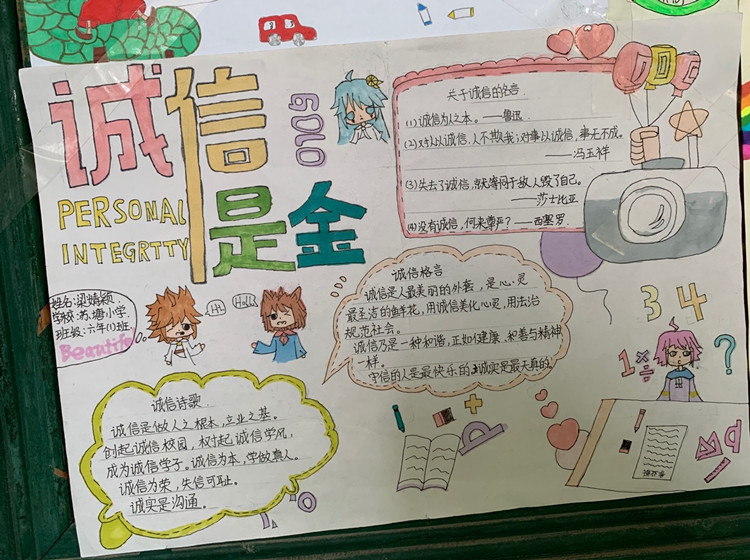 诚信
是金
GOLD
PERSONAL
INTEGRTTY
姓名:梁婧颖
学校:苏塘小学
班级:六年(1)班
Beautiful
Hi
Hello
关于诚信的名言
(1)诚信为人之本。——鲁迅
(2)对人以诚信,人不欺我;对事以诚信,事无不成。
——冯玉祥
(3)失去了诚信,就等同于敌人毁了自己。
——莎士比亚
(4)没有诚信,何来尊严?——西塞罗
诚信格言
诚信是人最美丽的外套,是心灵
最圣洁的鲜花,用诚信美化心灵,用法治
规范社会。
诚信乃是一种和谐,正如健康,和善与精神
一样。
守信的人是最快乐的,诚实是最天真的
诚信诗歌
诚信是做人之根本,立业之基。
创起诚信校园,树起诚信学风,
成为诚信学子。诚信为本,学做真人。
诚信为荣,失信可耻。
诚实是沟通。
3 4
1 × ÷ ?